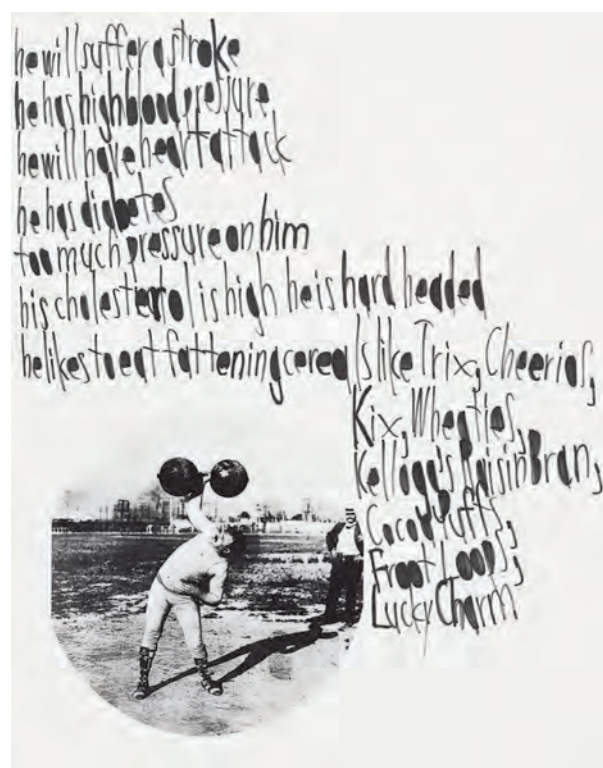 he will suffer a stroke
he has high blood pressure
he will have heart attack
he has diabetes
too much pressure on him
his cholesterol is high he is hard headed
he likes to eat fattening cereals like Trix, Cheerios,
Kix, Wheaties,
Kellogg's Raisin Bran,
Cocoa Puffs,
Froot Loops,
Lucky Charm